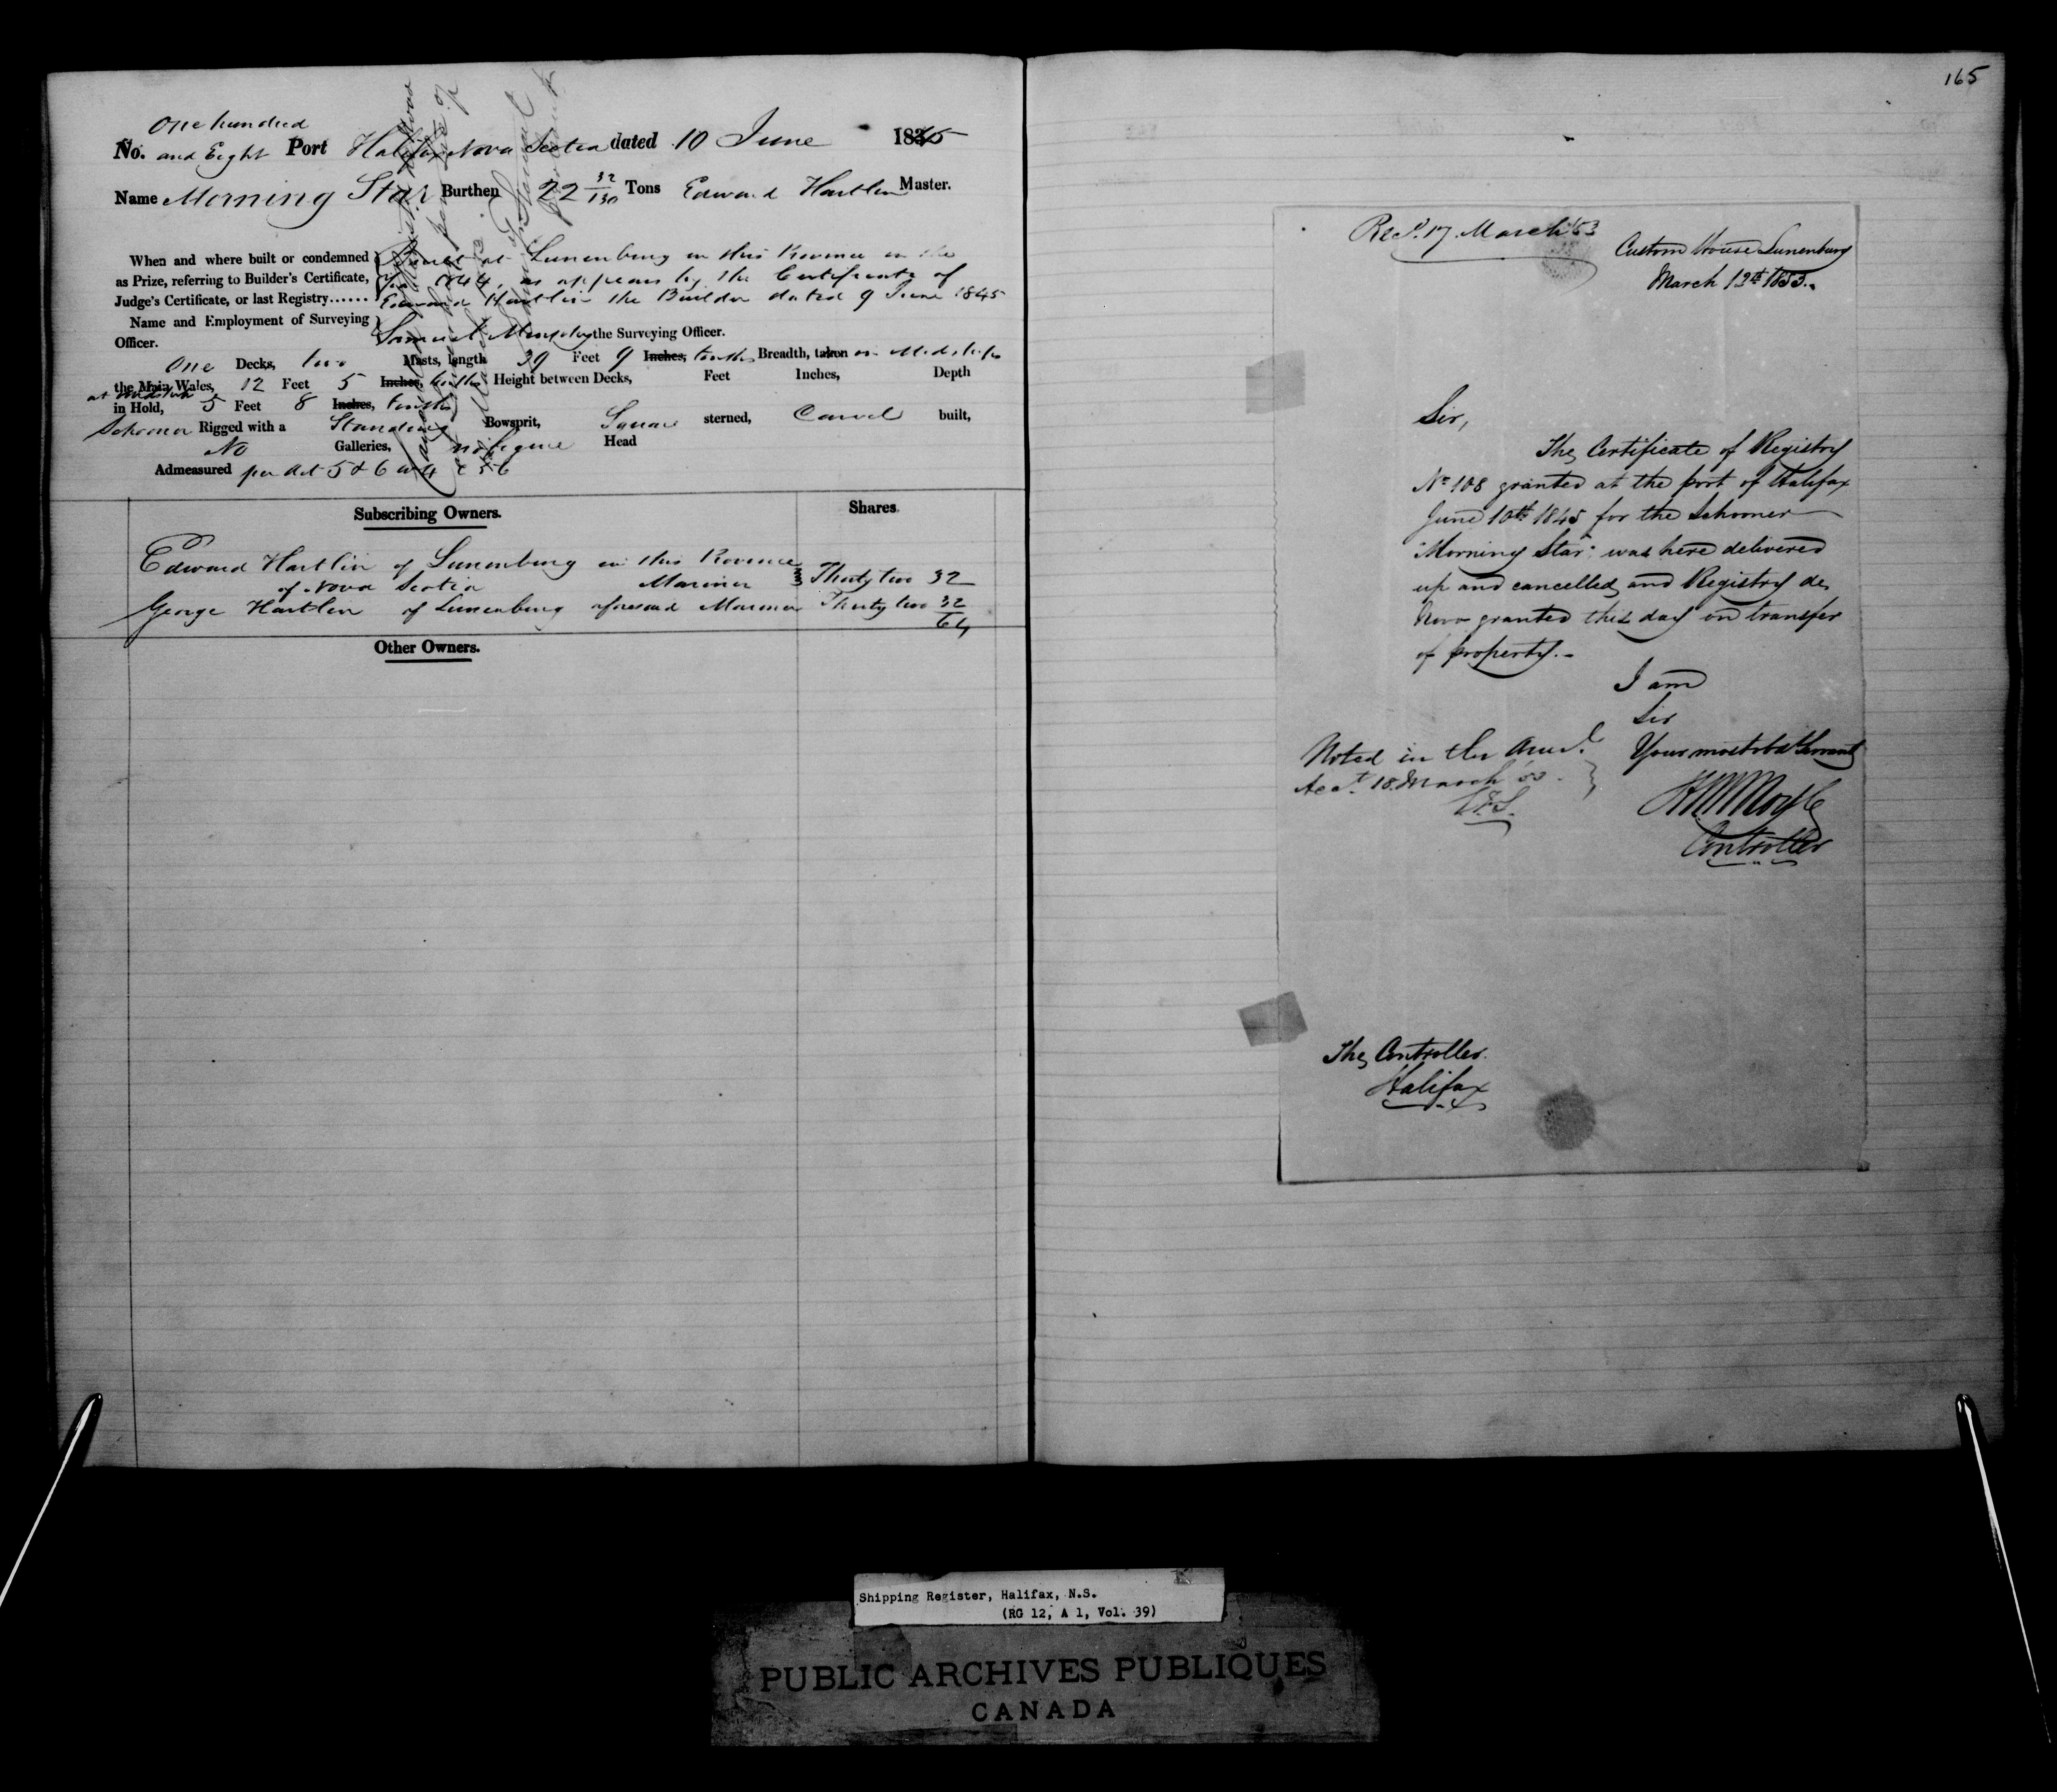 One hundred
No. and Eight Port Halifax Nova Scotia dated 10 June 1845
Name Morning Star Burthen 22 32/130 Tons Edward Hartlin Master.
When and where built or condemned
as Prize, referring to Builder's Certificate,
Judge's Certificate, or last Registry......
Built at Lunenburg in this Province in the
year 1844, as appears by the Certificate of
Edward Hartlin the Builder dated 9 June 1845
Name and Employment of Surveying
Officer.
Samuel the Surveying Officer.
One Decks, two Masts, length 39 Feet 9 Inches, tenths Breadth, taken in Midships
the Main Wales, 12 Feet 5 Inches, tenths Height between Decks, Feet Inches, Depth
at Midships
in Hold, 5 Feet 8 Inches, tenths
Schooner Rigged with a Standing Bowsprit, Square sterned, Carvel built,
No Galleries, no figure Head
Admeasured per Act 5 & 6 W 4 c 56
Subscribing Owners. Shares.
Edward Hartlin of Lunenburg in this Province
of Nova Scotia Mariner Thirty two 32
George Hartlin of Lunenburg aforesaid Mariner Thirty two 32
64
Other Owners.
165
Recd. 17 March 53
Custom House Lunenburg
March 12th 1853.
Sir,
The Certificate of Registry
No 108 granted at the port of Halifax
June 10th 1845 for the Schooner
"Morning Star" was here delivered
up and cancelled and Registry de
Novo granted this day on transfer
of property.-
I am
Sir
Your most obdt Servant
Controller
Noted in the
Acct. 18 March 53.
The Controller.
Halifax
Shipping Register, Halifax, N.S.
(RG 12, A 1, Vol. 39)
PUBLIC ARCHIVES PUBLIQUES
CANADA